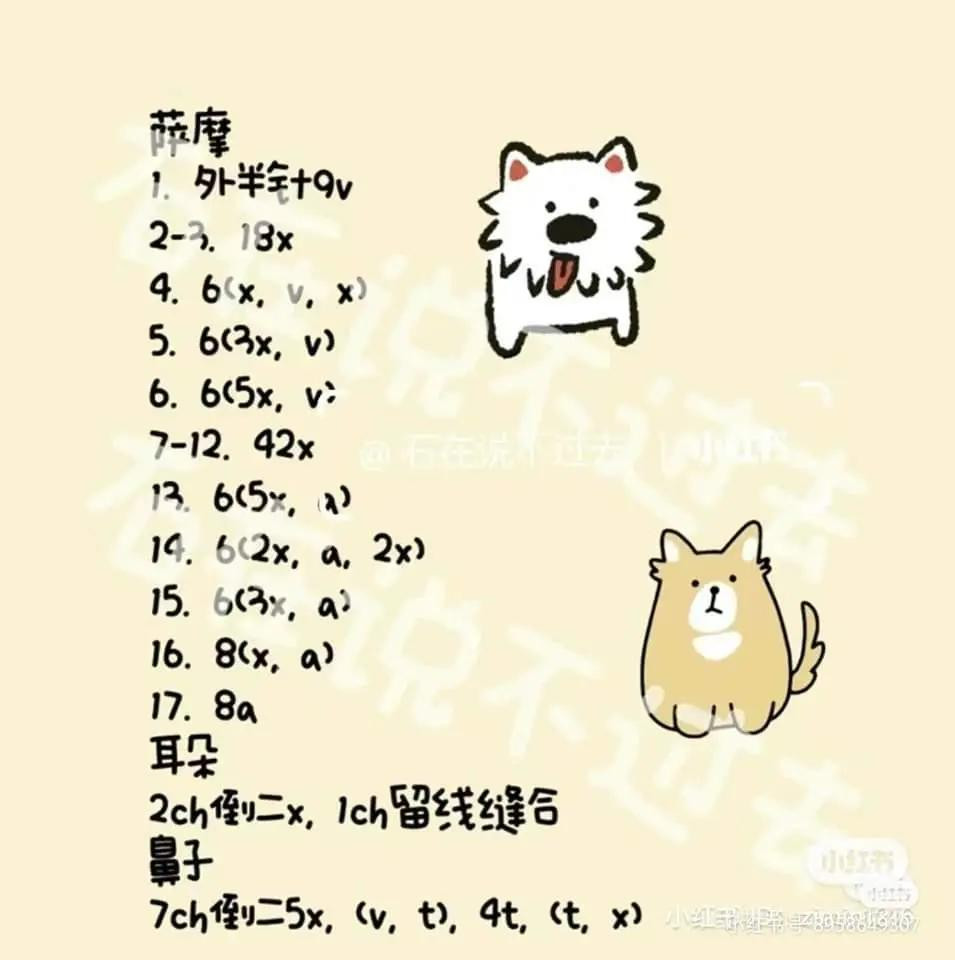 萨摩
1. 外半针9v
2-3. 18x
4. 6(x, v, x)
5. 6(3x, v)
6. 6(5x, v)
7-12. 42x
13. 6(5x, a)
14. 6(2x, a, 2x)
15. 6(3x, a)
16. 8(x, a)
17. 8a
耳朵
2ch倒二x, 1ch留线缝合
鼻子
7ch倒二5x, (v, t), 4t, (t, x)
@石在说不过去 | 小红书
石在说不过去
石在说不过去
小红书
小红书